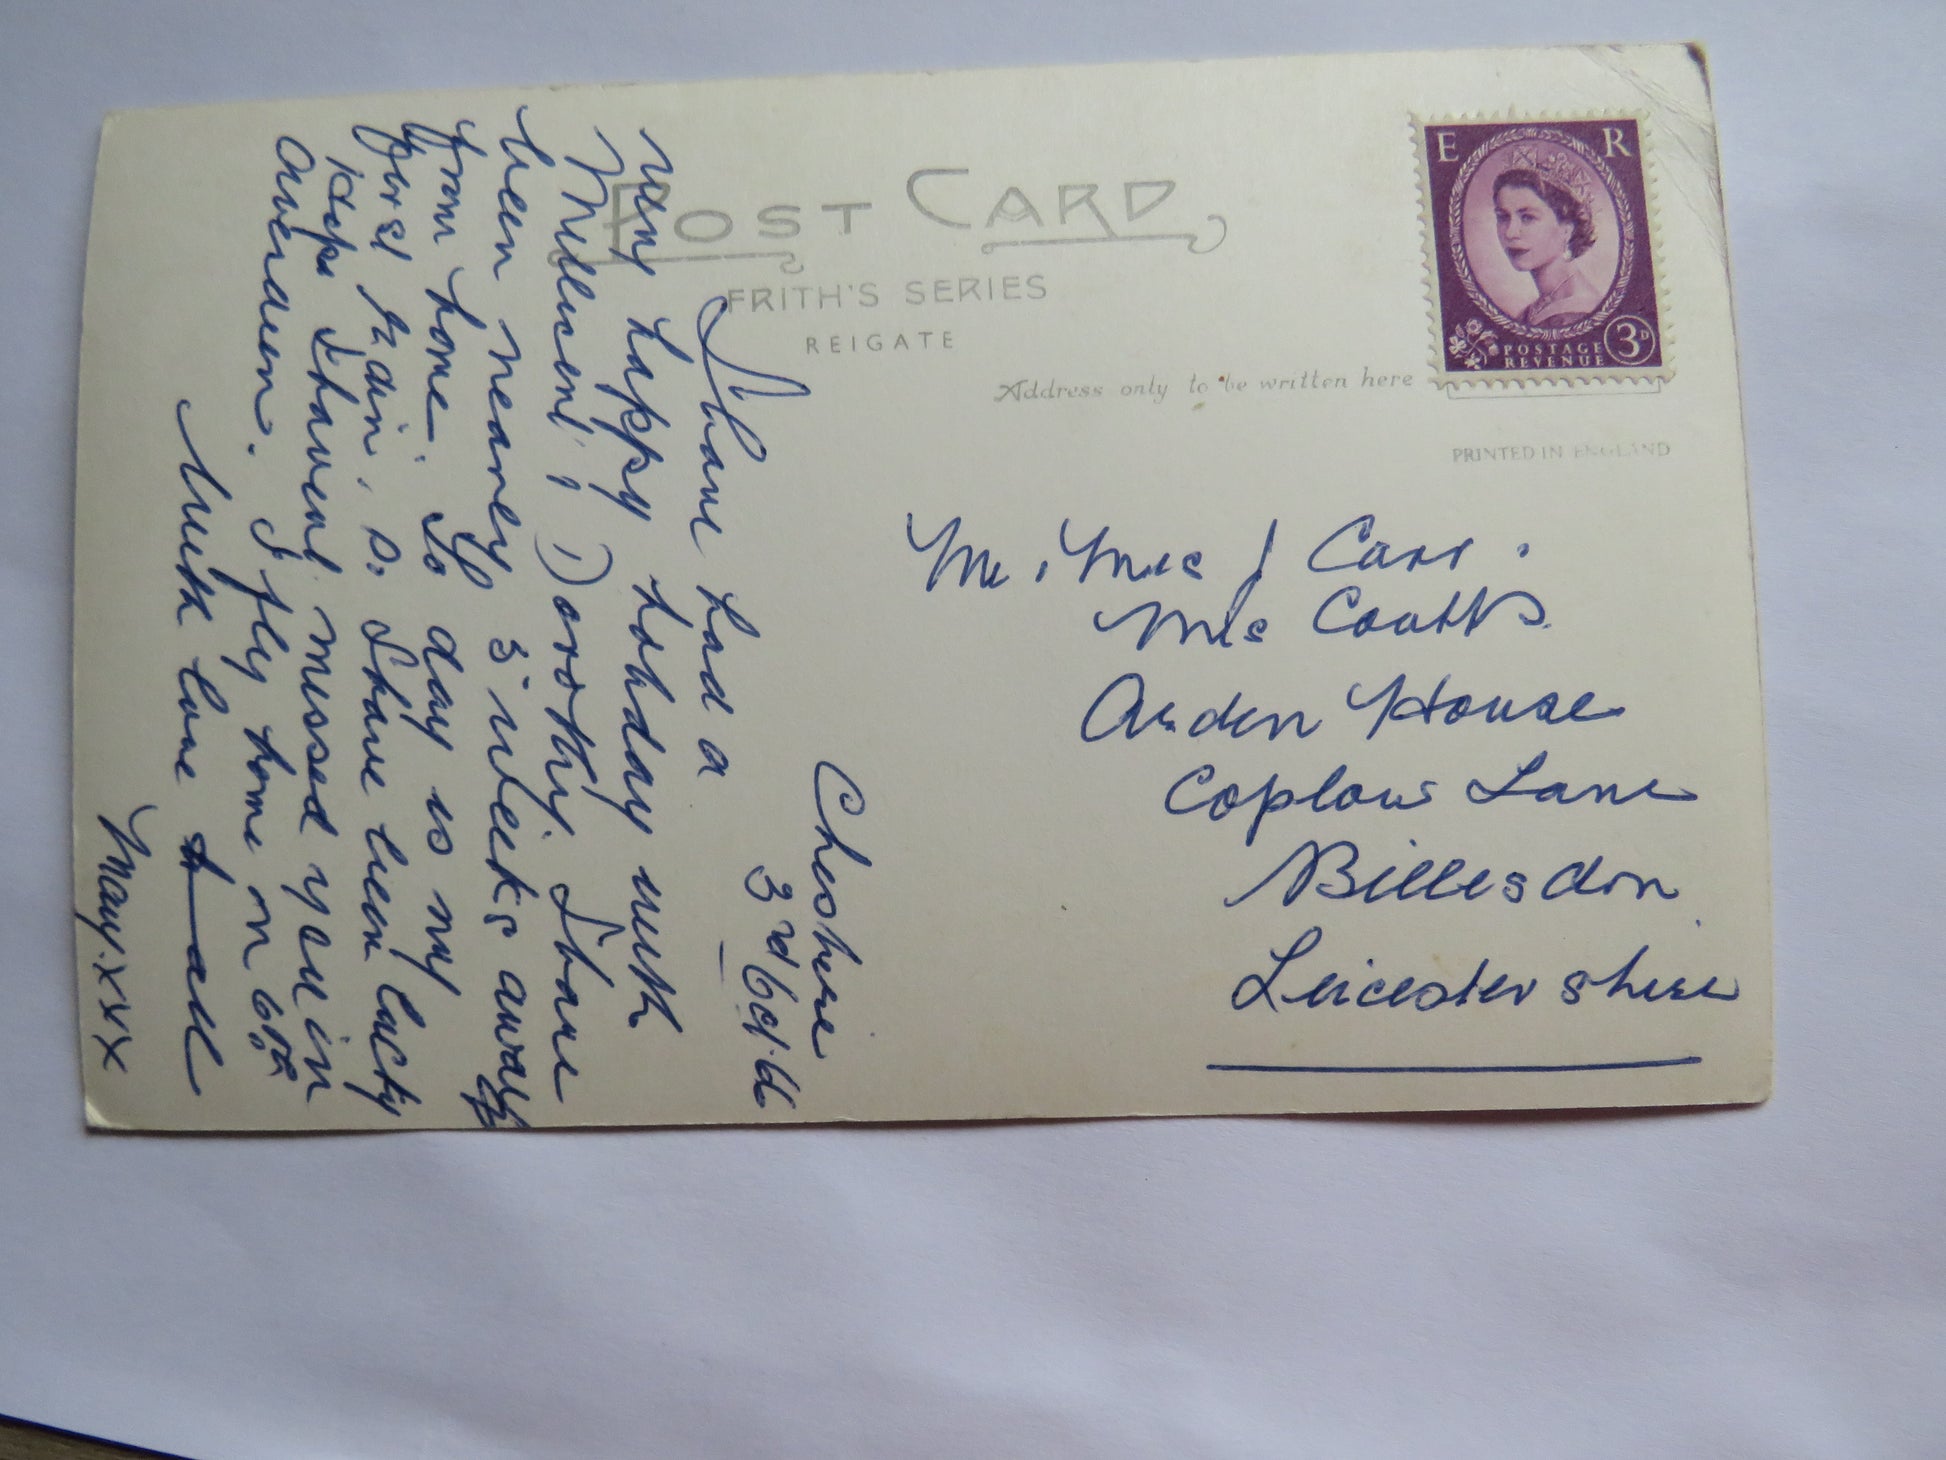 POST CARD
FRITH'S SERIES
REIGATE
Address only to be written here
E R
POSTAGE
REVENUE
3D
PRINTED IN ENGLAND
Mr & Mrs J Carr.
Mrs Coutts
Arden House
Coplow Lane
Billesdon
Leicestershire
Cheshire
3rd Oct. 
I have had a
very happy holiday with
Millicent & Dorothy. I have
been nearly 3 weeks away
from home. To day is my
first rain, so I have been lucky
Hope I havent missed you in
I fly home on 6th
Much love to all
May. x x x